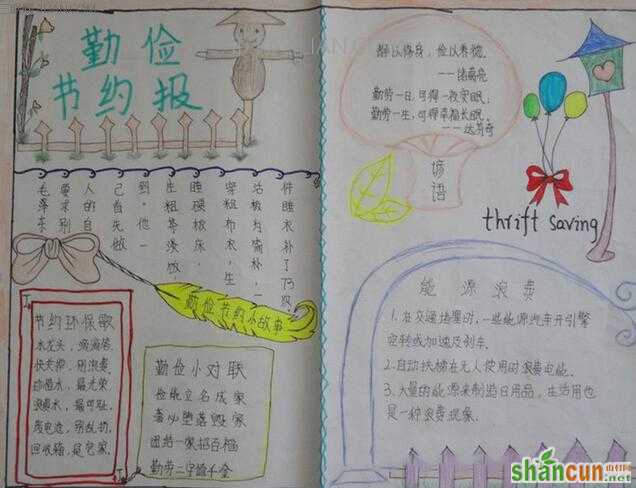 勤俭
节约报
毛泽东
要求别
人的自
己首先做
到。他一
生粗茶淡饭,
睡硬板床,
穿粗布衣,生
活极为简朴,一
件睡衣补了73次,
勤俭节约小故事
节约环保歌
水龙头,滴滴答.
快关掉,别浪费.
水,最光荣.
浪费水,最可耻.
废电池,别乱扔.
回收箱,是它家.
勤俭小对联
俭能立名成家
奢必堕落毁家
团结一家招百福
勤劳二字值千金
静以修身,俭以养德。
——诸葛亮
勤劳一日,可得一夜安眠;
勤劳一生,可得幸福长眠。
——达芬奇
谚语
thrift saving
能源浪费
1.在交通堵塞时,一些能源汽车开引擎
空转或加速及刹车.
2.自动扶梯在无人使用时浪费电能.
3.大量的能源来制造日用品,在活用也
是一种浪费现象.
shancun
山村网
.net